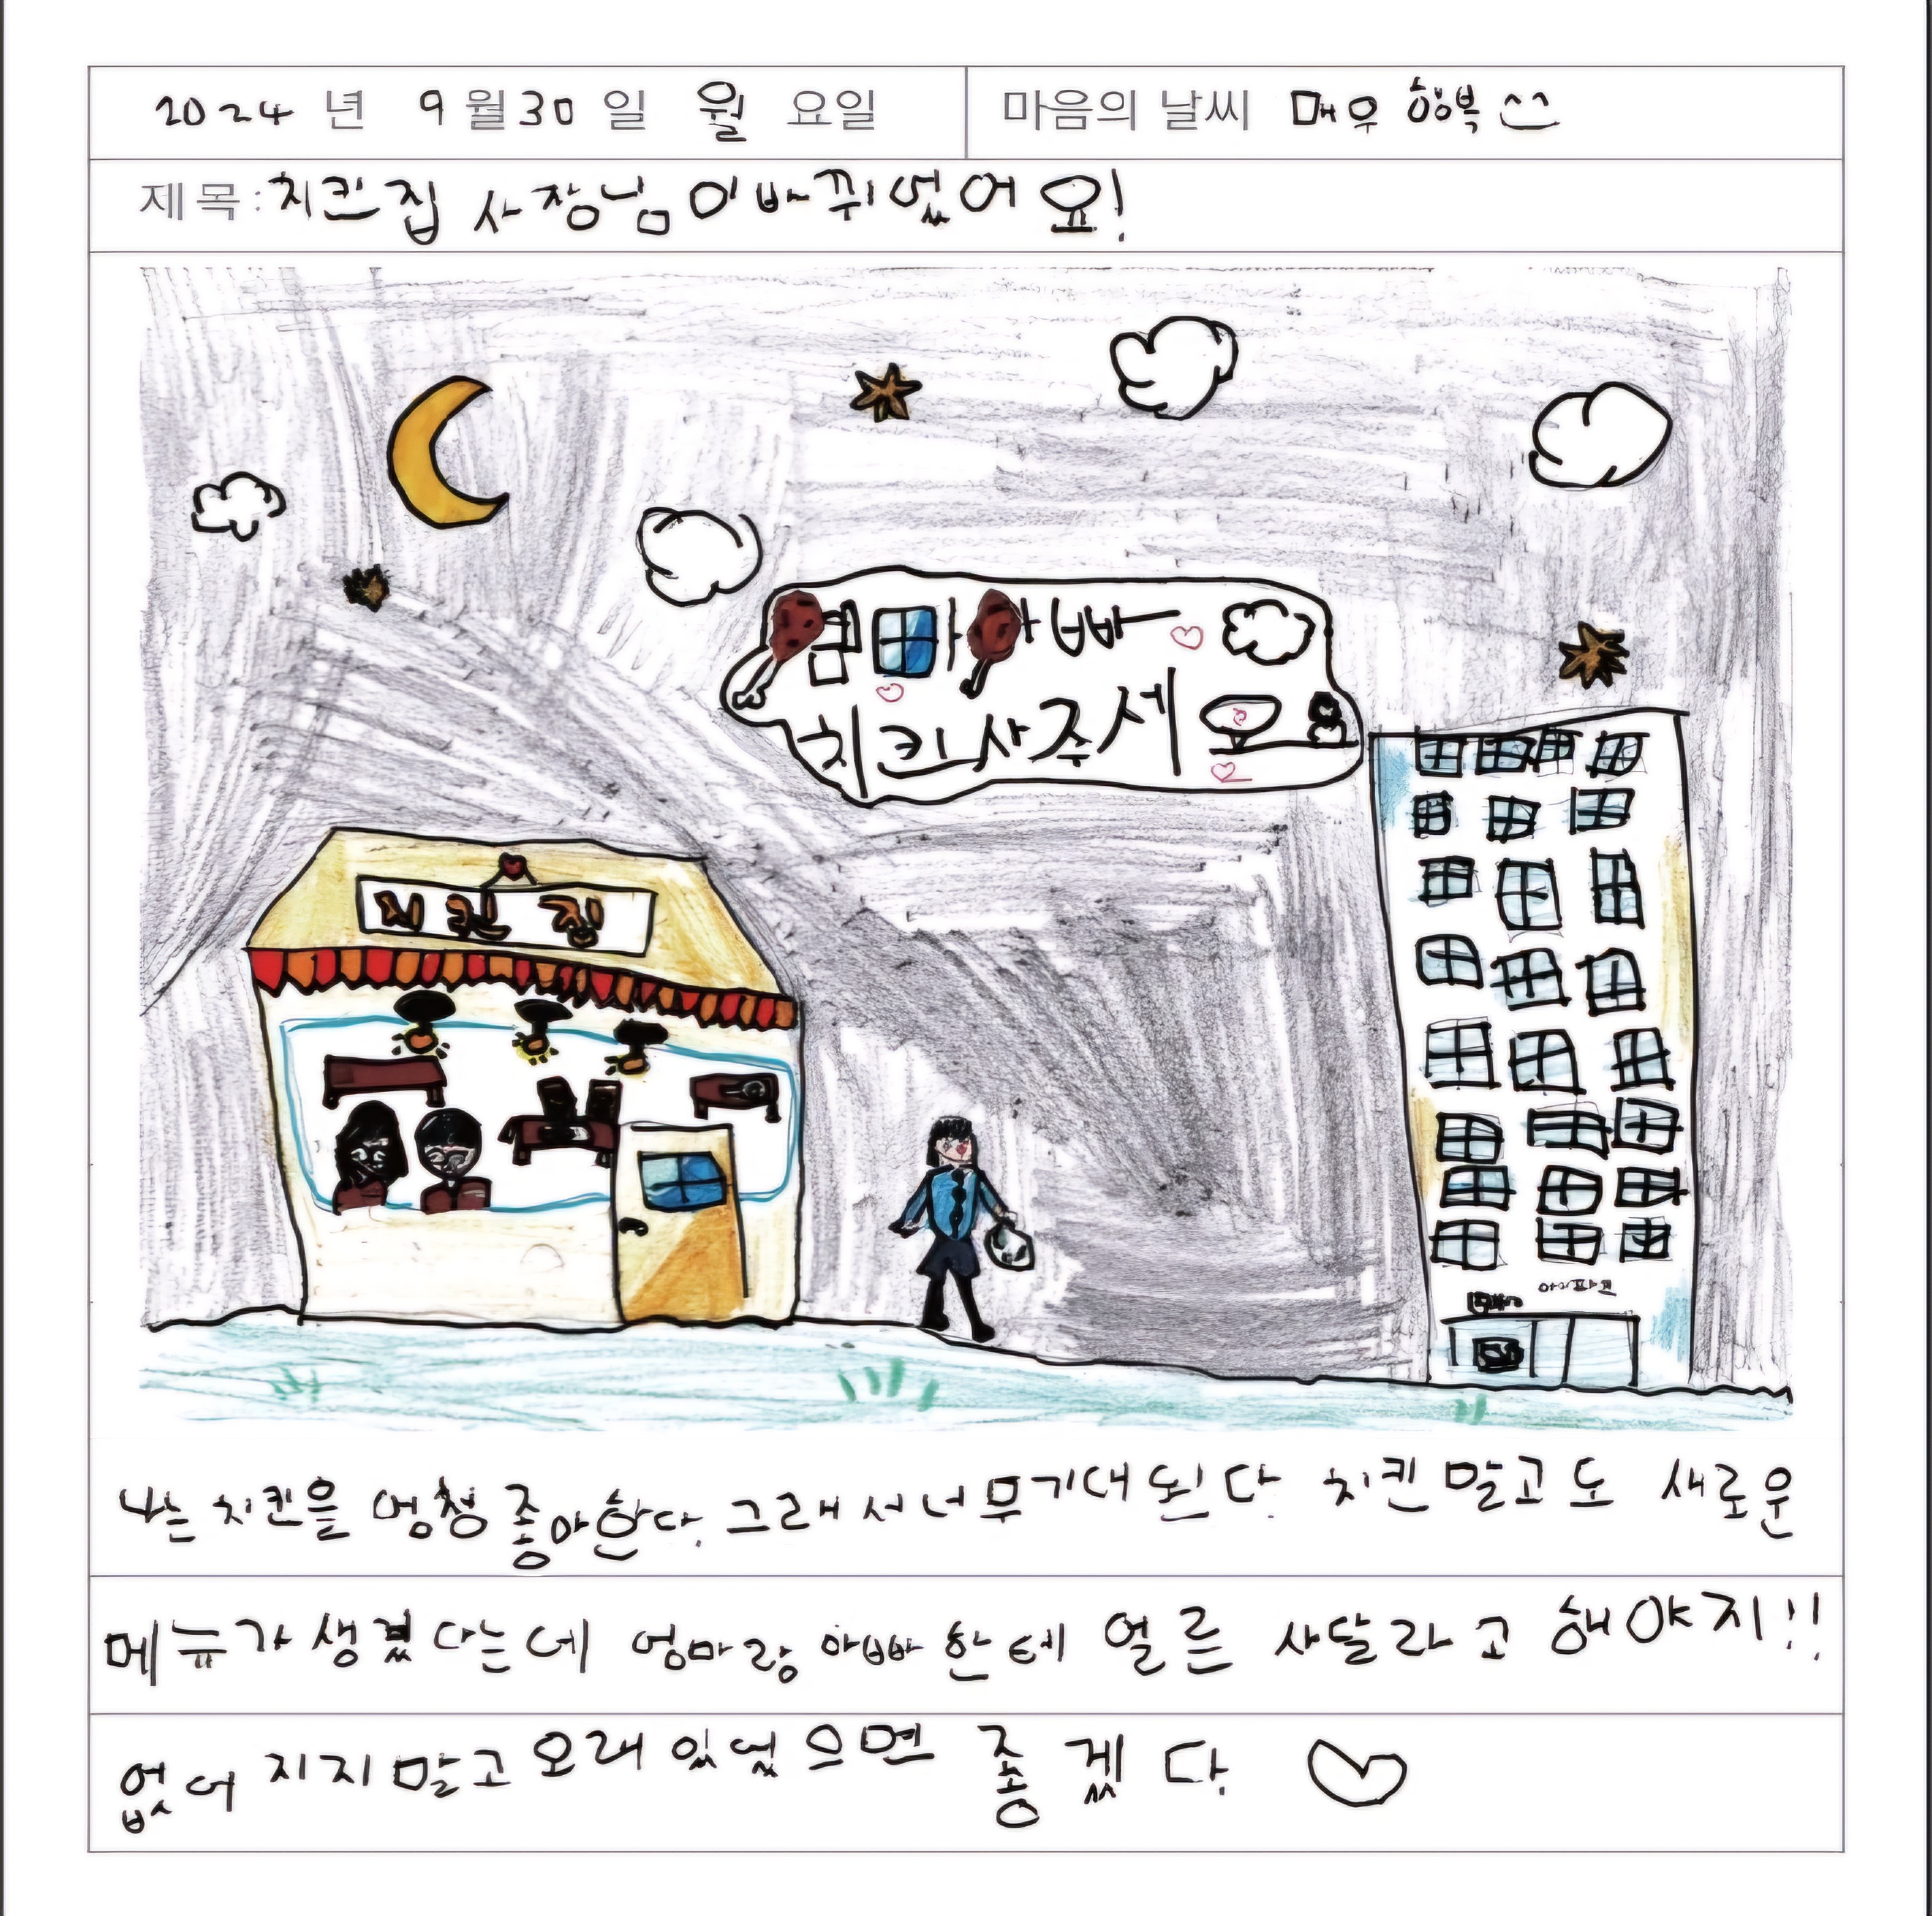 2024 년 9 월 30 일 월 요일 마음의 날씨 매우 행복 ^^
제목: 치킨집 사장님이 바뀌었어요!
엄마아빠 ♡
치킨사주세요
치킨 집
아파트
나는 치킨을 엄청 좋아한다. 그래서 너무 기대된다. 치킨 말고도 새로운
메뉴가 생겼다는데 엄마랑 아빠한테 얼른 사달라고 해야지!!
없어지지말고 오래 있었으면 좋겠다. ♡